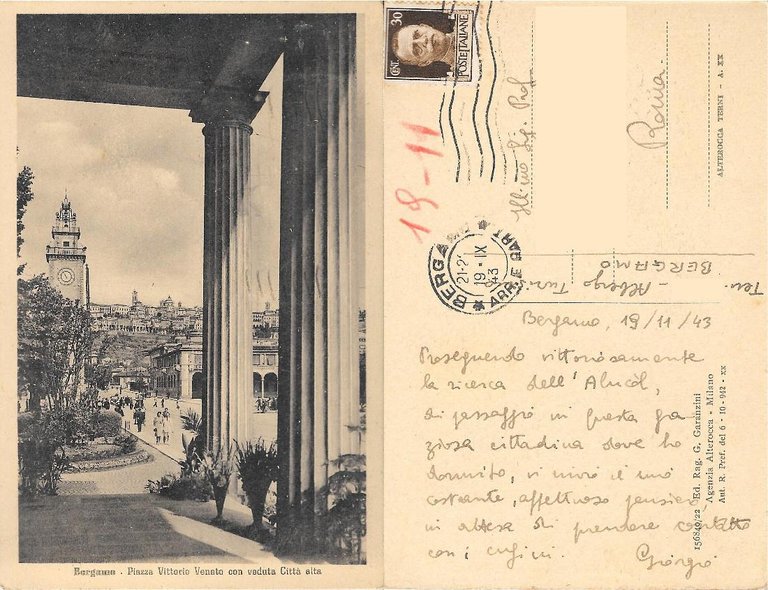 Bergamo - Piazza Vittorio Veneto con veduta Città alta
CENT. 30
POSTE ITALIANE
19-11
Ill.mo Sig. Prof.
Roma.
ALTEROCCA TERNI - A. XX
BERGAMO
21-2
19 · IX
43
ARR. E PART.
Ten. - Albergo
BERGAMO
Bergamo, 19/11/43
Proseguendo vittoriosamente
la ricerca dell'
di passaggio in questa gra
ziosa cittadina dove ho
dormito, vi invio il mio
costante, affettuoso pensiero
in attesa di prendere contatto
con i cugini.
Giorgio
156840/22 Ed. Rag. G. Garanzini
Agenzia Alterocca - Milano
Aut. R. Pref. del 6 - 10 - 942 - XX